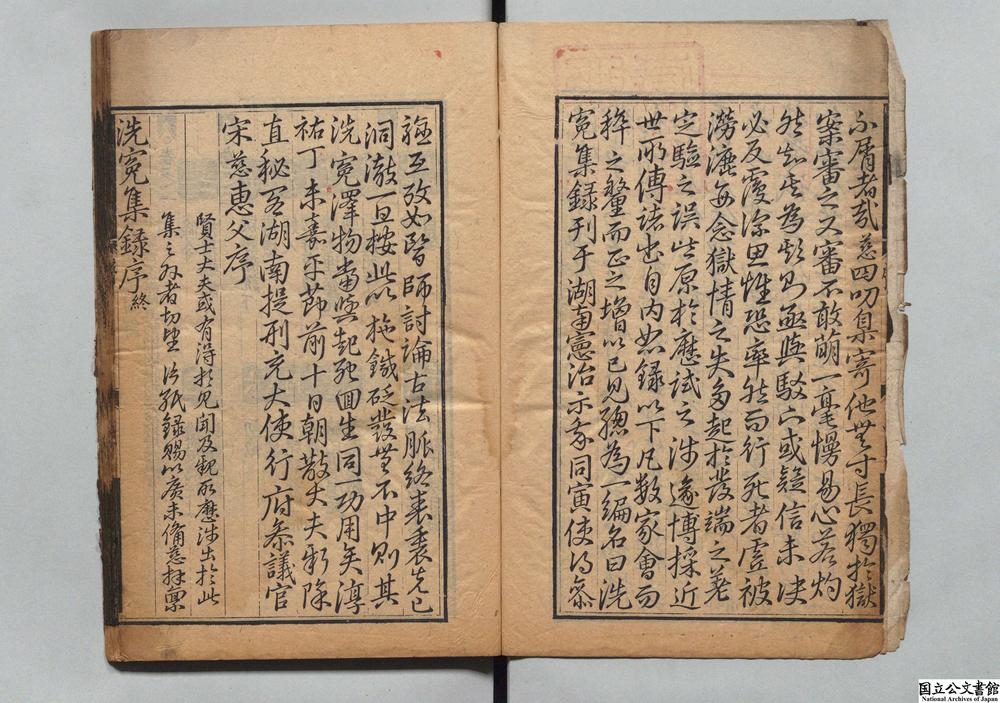 不屑者哉慈四叨臬寄他無寸長獨於獄
案審之又審不敢萌一毫慢易心若灼
然知其為欺則亟與駁下或疑信未決
必反覆深思惟恐率然而行死者虛被
澇漉每念獄情之失多起於發端之差
定驗之誤皆原於歷試之淺遂博採近
世所傳諸書自內恕錄以下凡數家會而
稡之釐而正之增以己見總為一編名曰洗
冤集錄刊于湖南憲治示我同寅使得參
驗互攷如醫師討論古法脈絡表裏先已
洞澈一旦按此以施鍼砭發無不中則其
洗冤澤物當與起死回生同一功用矣淳
祐丁未嘉平節前十日朝散大夫新除
直秘閣湖南提刑充大使行府參議官
宋慈惠父序
賢士大夫或有得於見聞及親所歷涉出於此
集之外者切望片紙錄賜以廣未備慈拜稟
洗冤集錄序終
国立公文書館
National Archives of Japan